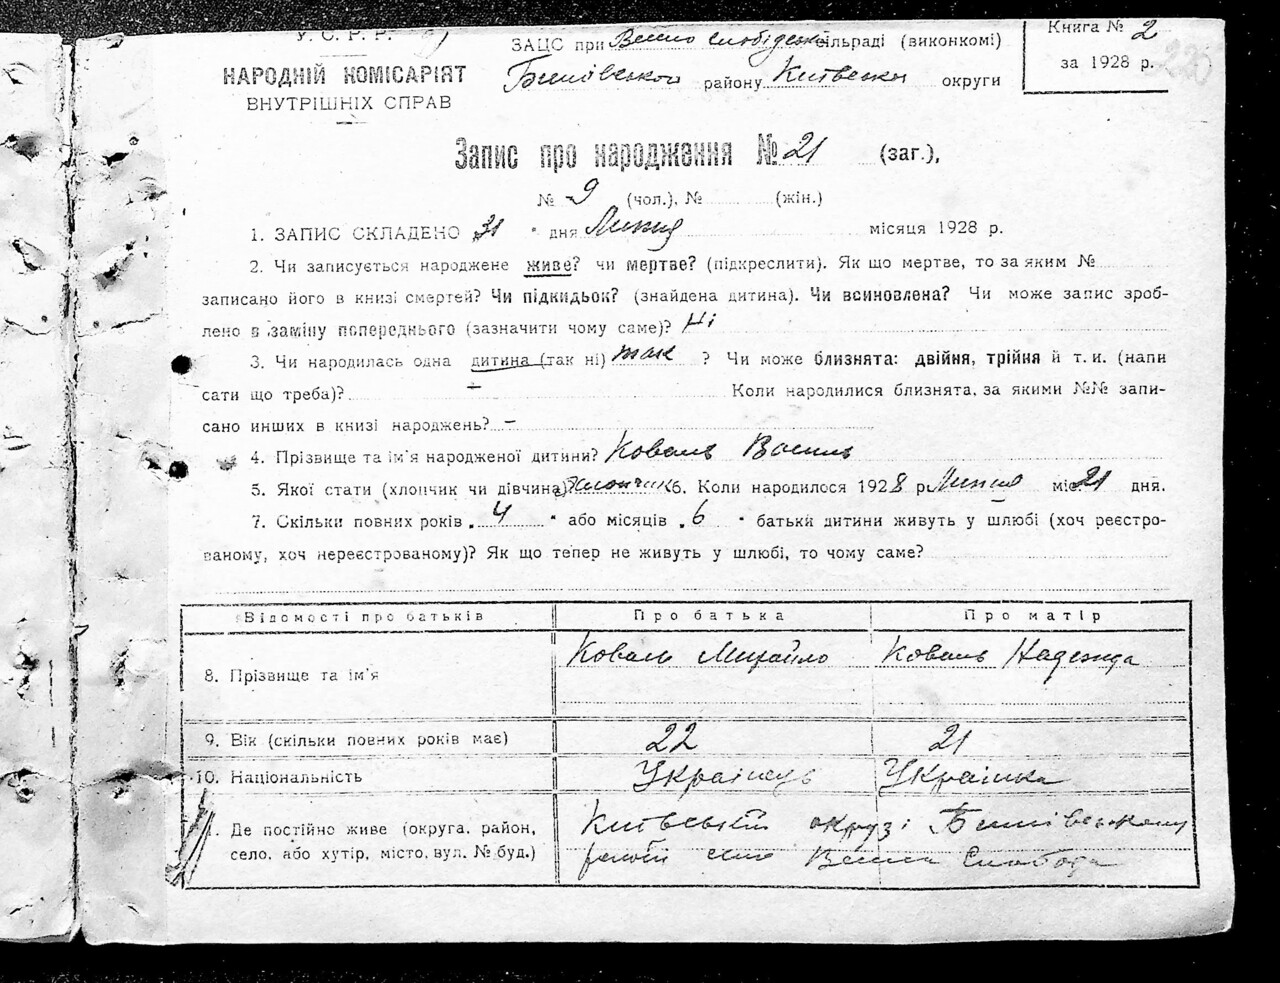 У. С. Р. Р.
НАРОДНІЙ КОМІСАРІЯТ
ВНУТРІШНІХ СПРАВ
ЗАЦС при сільраді (виконкомі)
району округи
Книга № 2
за 1928 р.
220
Запис про народження № 21 (заг.),
№ 9 (чол.), № (жін.)
1. ЗАПИС СКЛАДЕНО 31 " дня Липня місяця 1928 р.
2. Чи записується народжене живе? чи мертве? (підкреслити). Як що мертве, то за яким №
записано його в книзі смертей? Чи підкидьок? (знайдена дитина). Чи всиновлена? Чи може запис зроб-
лено в заміну попереднього (зазначити чому саме)? Ні
3. Чи народилась одна дитина (так ні) так ? Чи може близнята: двійня, трійня й т. и. (напи
сати що треба)? — Коли народилися близнята, за якими №№ запи-
сано инших в книзі народжень? —
4. Прізвище та ім'я народженої дитини? Коваль Василь
5. Якої стати (хлопчик чи дівчина)? Хлопчик 6. Коли народилося 1928 р. Липня міс. 21 дня.
7. Скільки повних років „ 4 " або місяців „ 6 " батьки дитини живуть у шлюбі (хоч реєстро-
ваному, хоч нереєстрованому)? Як що тепер не живуть у шлюбі, то чому саме?
Відомості про батьків Про батька Про матір
8. Прізвище та ім'я Коваль Михайло Коваль Надежда
9. Вік (скільки повних років має) 22 21
10. Національність Українець Українка
11. Де постійно живе (округа, район, Київській окрузі
село, або хутір, місто, вул. № буд.) село Слобода